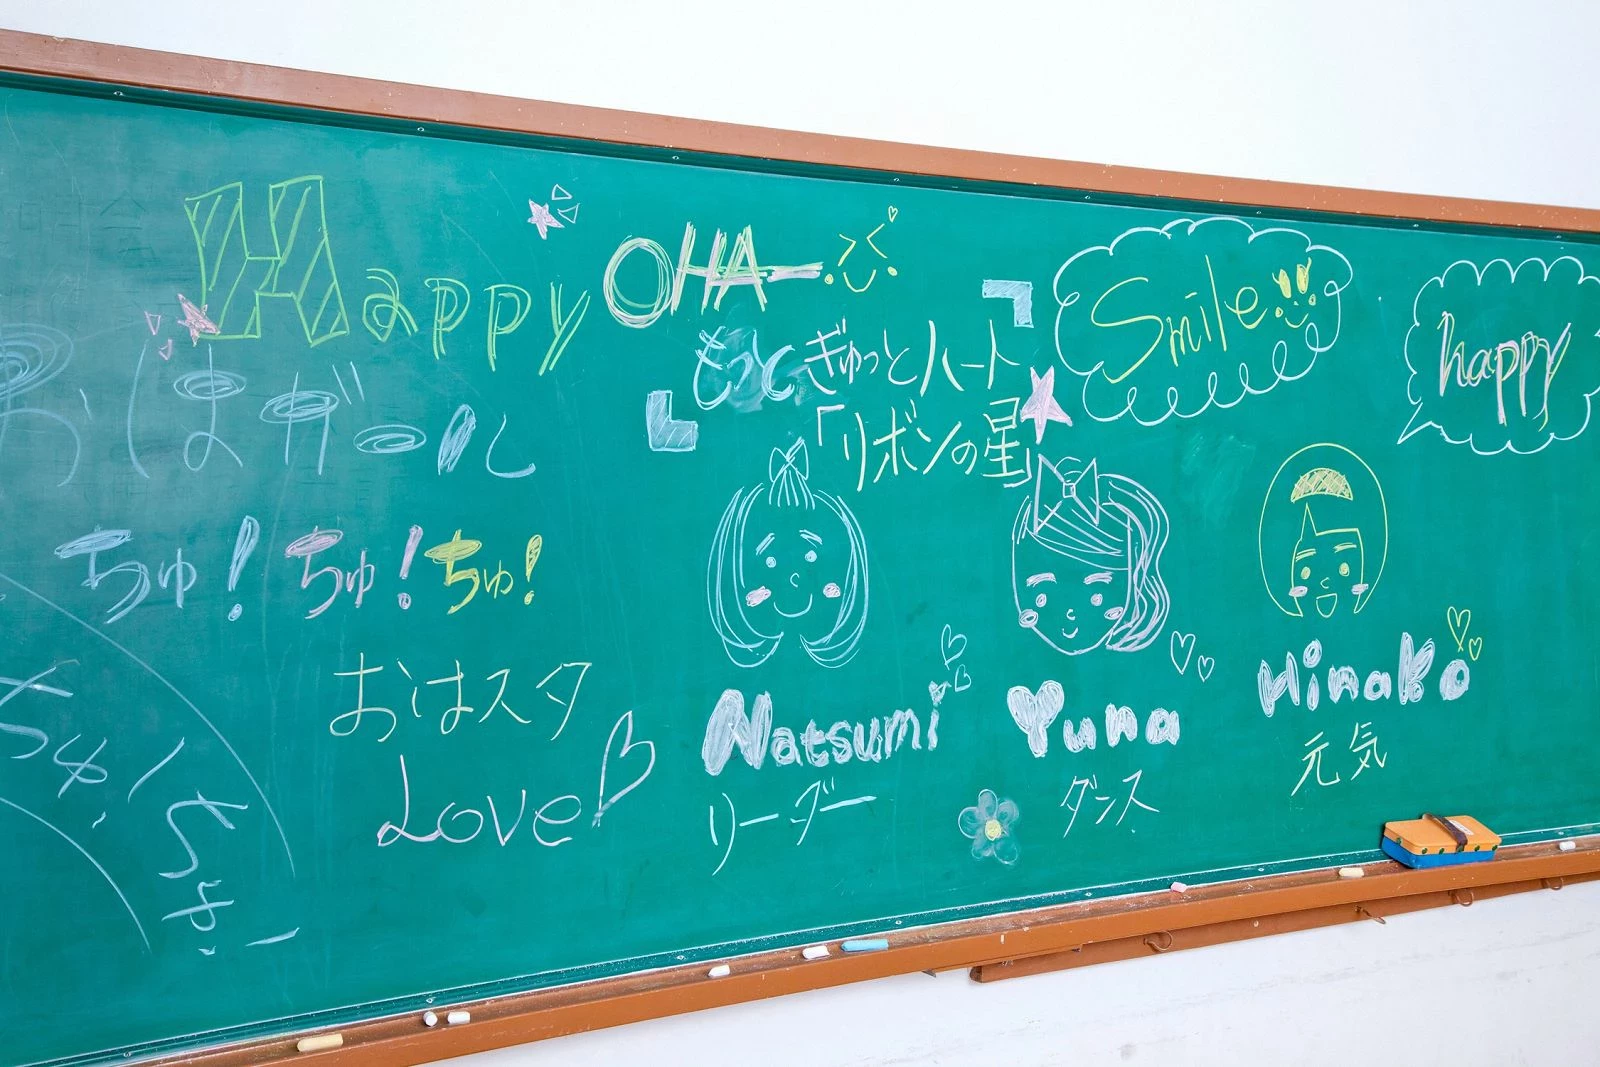 Happy
OHA
おはガール
ちゅ!ちゅ!ちゅ!
おはスタ
Love
ちゅ!ちゅ!
もっとぎゅっとハート
「リボンの星」
Smile
happy
Natsumi
リーダー
Yuna
ダンス
Hinako
元気